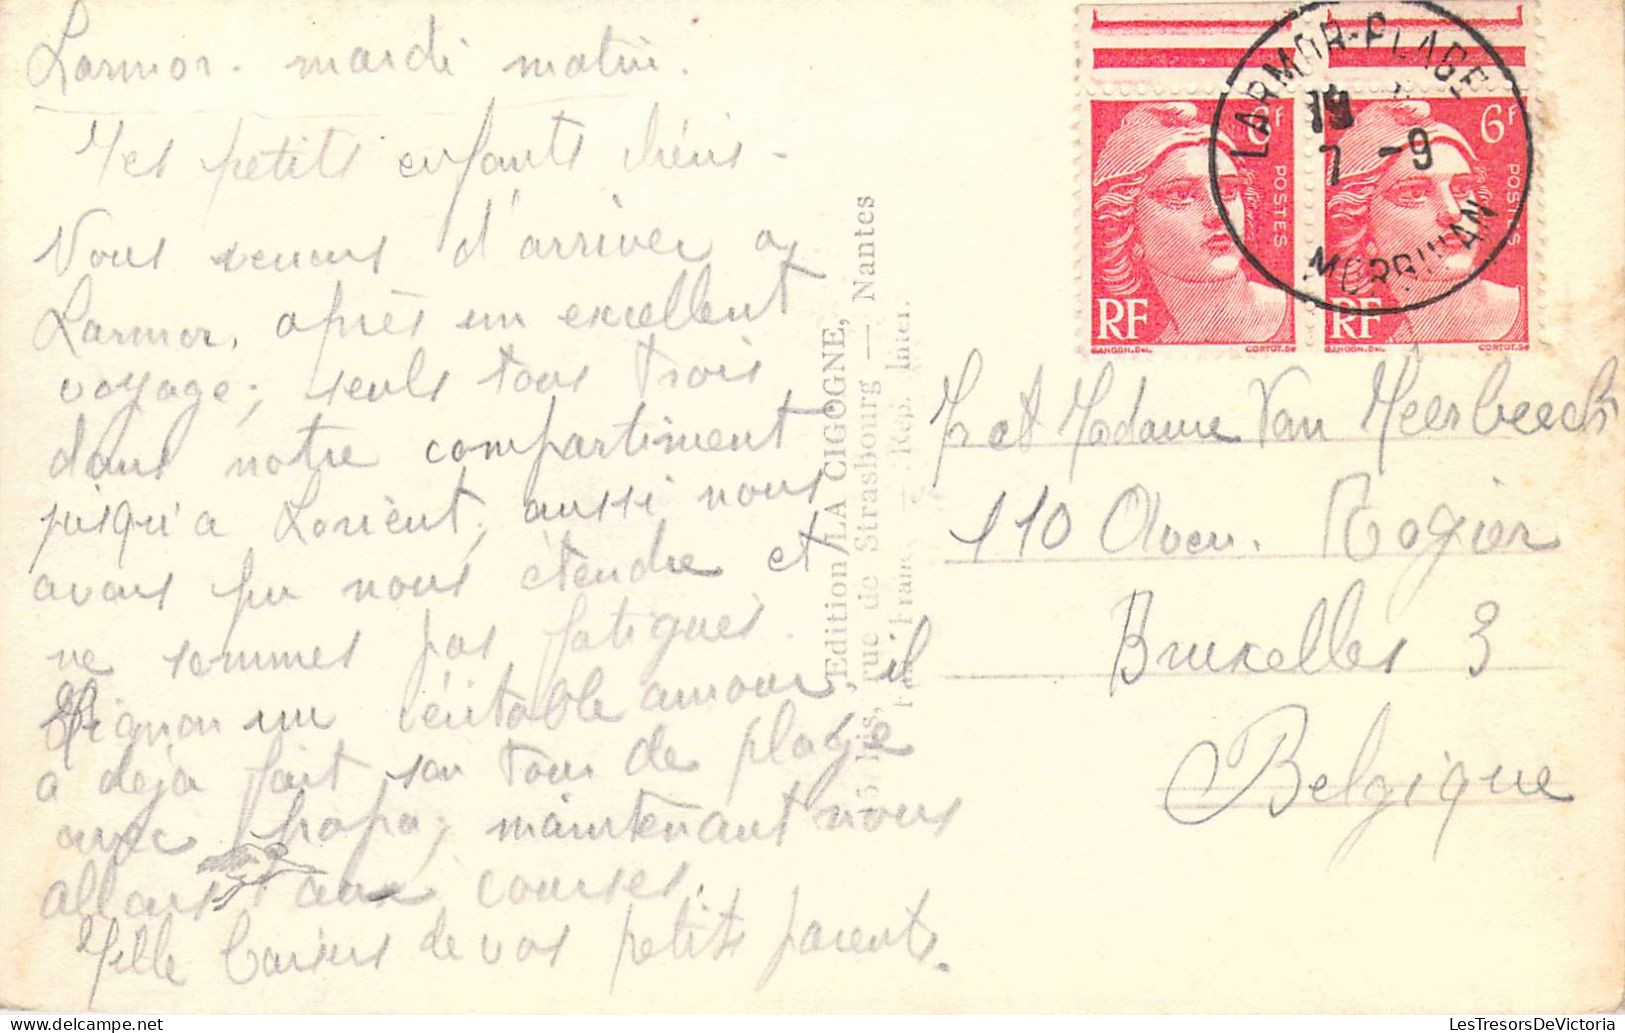 Larmor. mardi matin.
Mes petits enfants chéris -
Nous venons d'arriver à
Larmor, après un excellent
voyage; seuls tous trois
dans notre compartiment
jusqu'à Lorient, aussi nous
avons pu nous étendre et
ne sommes pas fatigués.
Mignon un véritable amour, il
a déjà fait son tour de plage
avec papa; maintenant nous
allons aux courses.
Mille baisers de vos petits parents.
Edition LA CIGOGNE,
bis, rue de Strasbourg — Nantes
Rep. Inter.
LARMOR-PLAGE
19
7 -9
MORBIHAN
6F
POSTES
RF
GANDON.Del.
CORTOT.Sc
6F
POSTES
RF
GANDON.Del.
CORTOT.Sc
M et Madame Van Meerbeeck
110 Aven. Rogier
Bruxelles 3
Belgique
LesTresorsDeVictoria